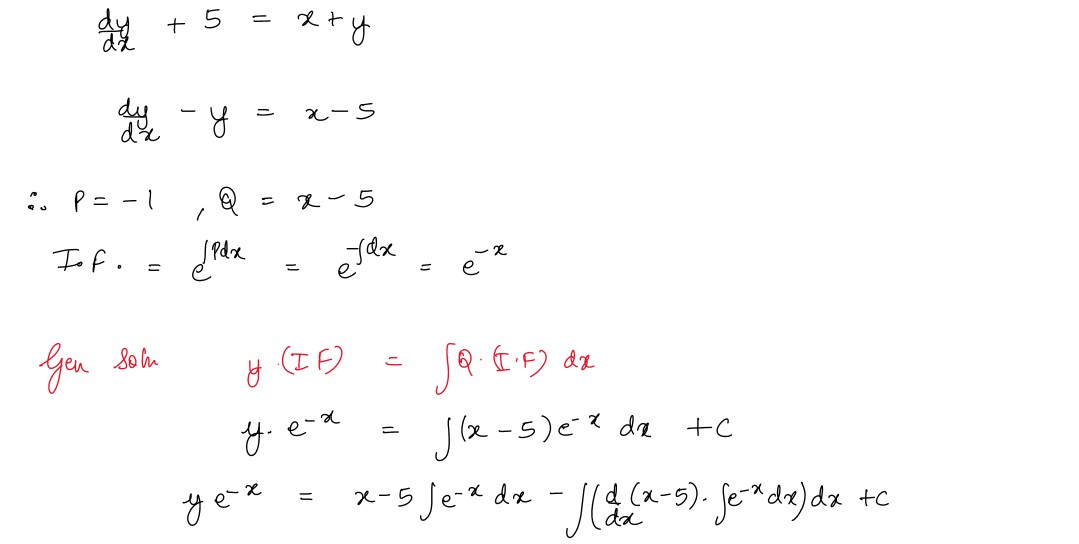 dy/dx + 5 = x + y
dy/dx - y = x - 5
∴ P = -1 , Q = x - 5
I.F. = e^∫Pdx = e^-∫dx = e^-x
Gen soln y·(IF) = ∫Q·(I·F) dx
y·e^-x = ∫(x - 5)e^-x dx + c
y e^-x = x - 5 ∫e^-x dx - ∫(d/dx (x-5)·∫e^-x dx)dx + c